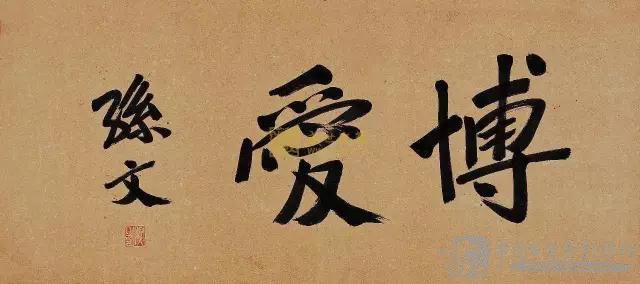 博愛
孫文